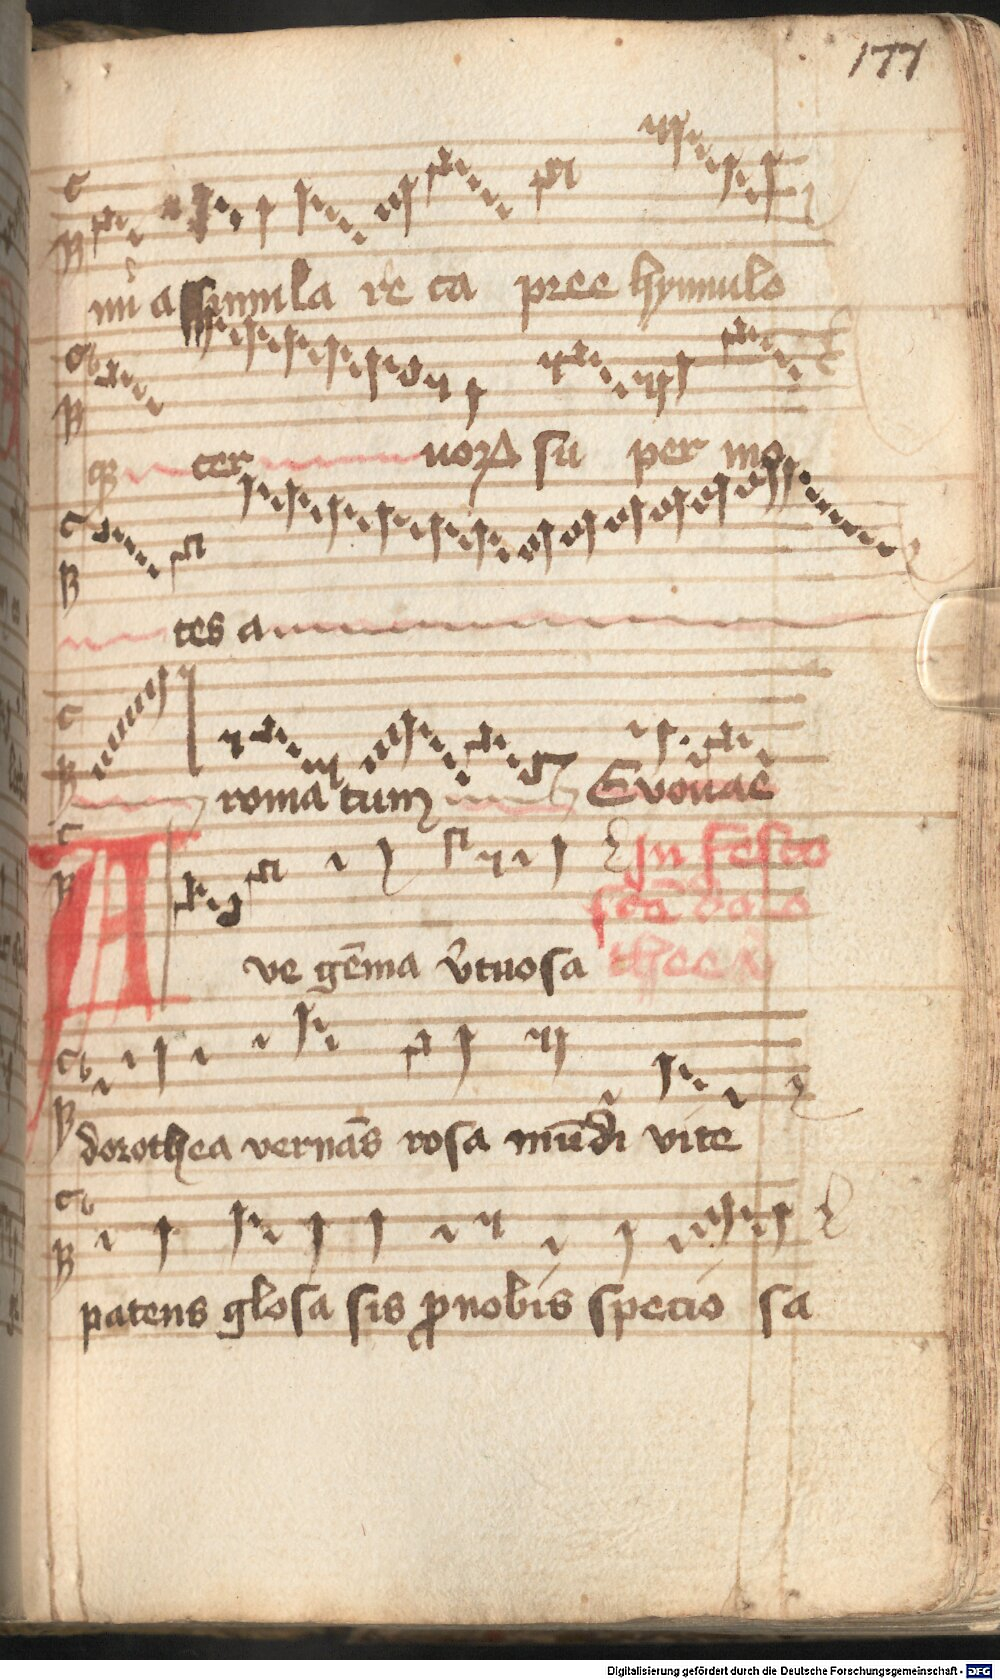 177
mi assimula re ca pree hynnulo
qz cer uorz su per mo
tes a
roma tum Evovae
In festo
scā doro
thee v
Ave gēma v̄tuosa
dorothea vernās rosa mūdi vite
patens glosa sis ꝓnobis specio sa
Digitalisierung gefördert durch die Deutsche Forschungsgemeinschaft - DFG